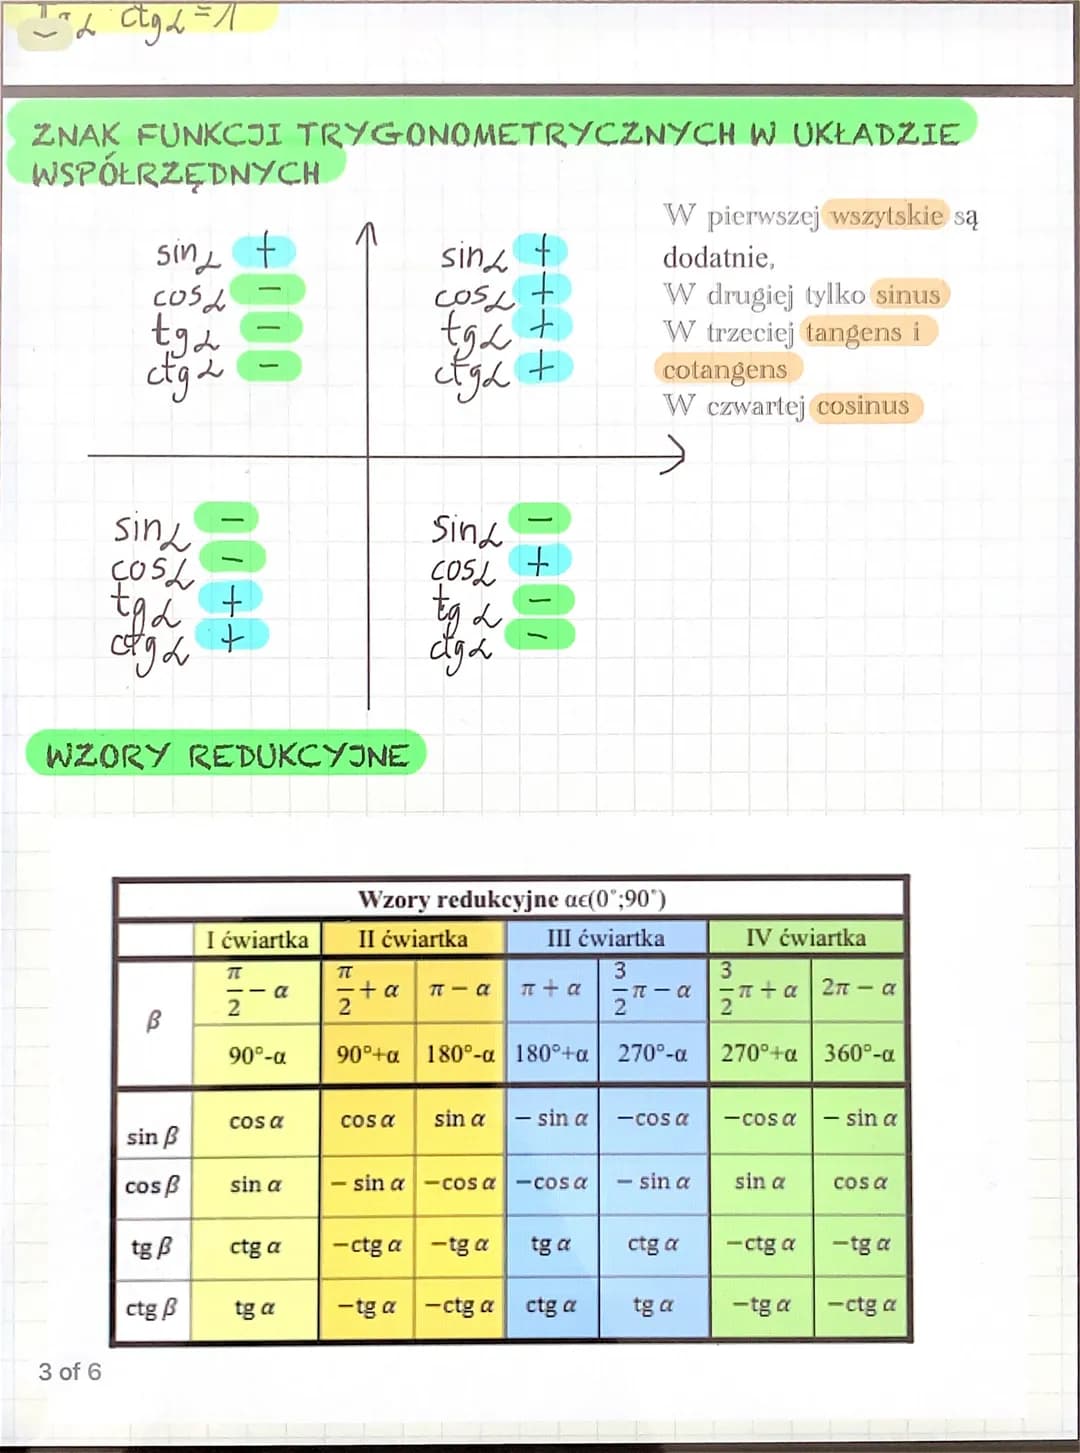 ctgα = 1
ZNAK FUNKCJI TRYGONOMETRYCZNYCH W UKŁADZIE
WSPÓŁRZĘDNYCH
sinα +
cosα -
tgα -
ctgα -
sinα +
cosα +
tgα +
ctgα +
W pierwszej wszytskie są
dodatnie,
W drugiej tylko sinus
W trzeciej tangens i
cotangens
W czwartej cosinus
sinα -
cosα -
tgα +
ctgα +
sinα -
cosα +
tgα -
ctgα -
WZORY REDUKCYJNE
Wzory redukcyjne αϵ(0°;90°)
I ćwiartka II ćwiartka III ćwiartka IV ćwiartka
β π/2 − α π/2 + α π − α π + α 3/2 π − α 3/2 π + α 2π − α
90°-α 90°+α 180°-α 180°+α 270°-α 270°+α 360°-α
sin β cos α cos α sin α − sin α −cos α −cos α − sin α
cos β sin α − sin α −cos α −cos α − sin α sin α cos α
tg β ctg α −ctg α −tg α tg α ctg α −ctg α −tg α
ctg β tg α −tg α −ctg α ctg α tg α −tg α −ctg α
3 of 6